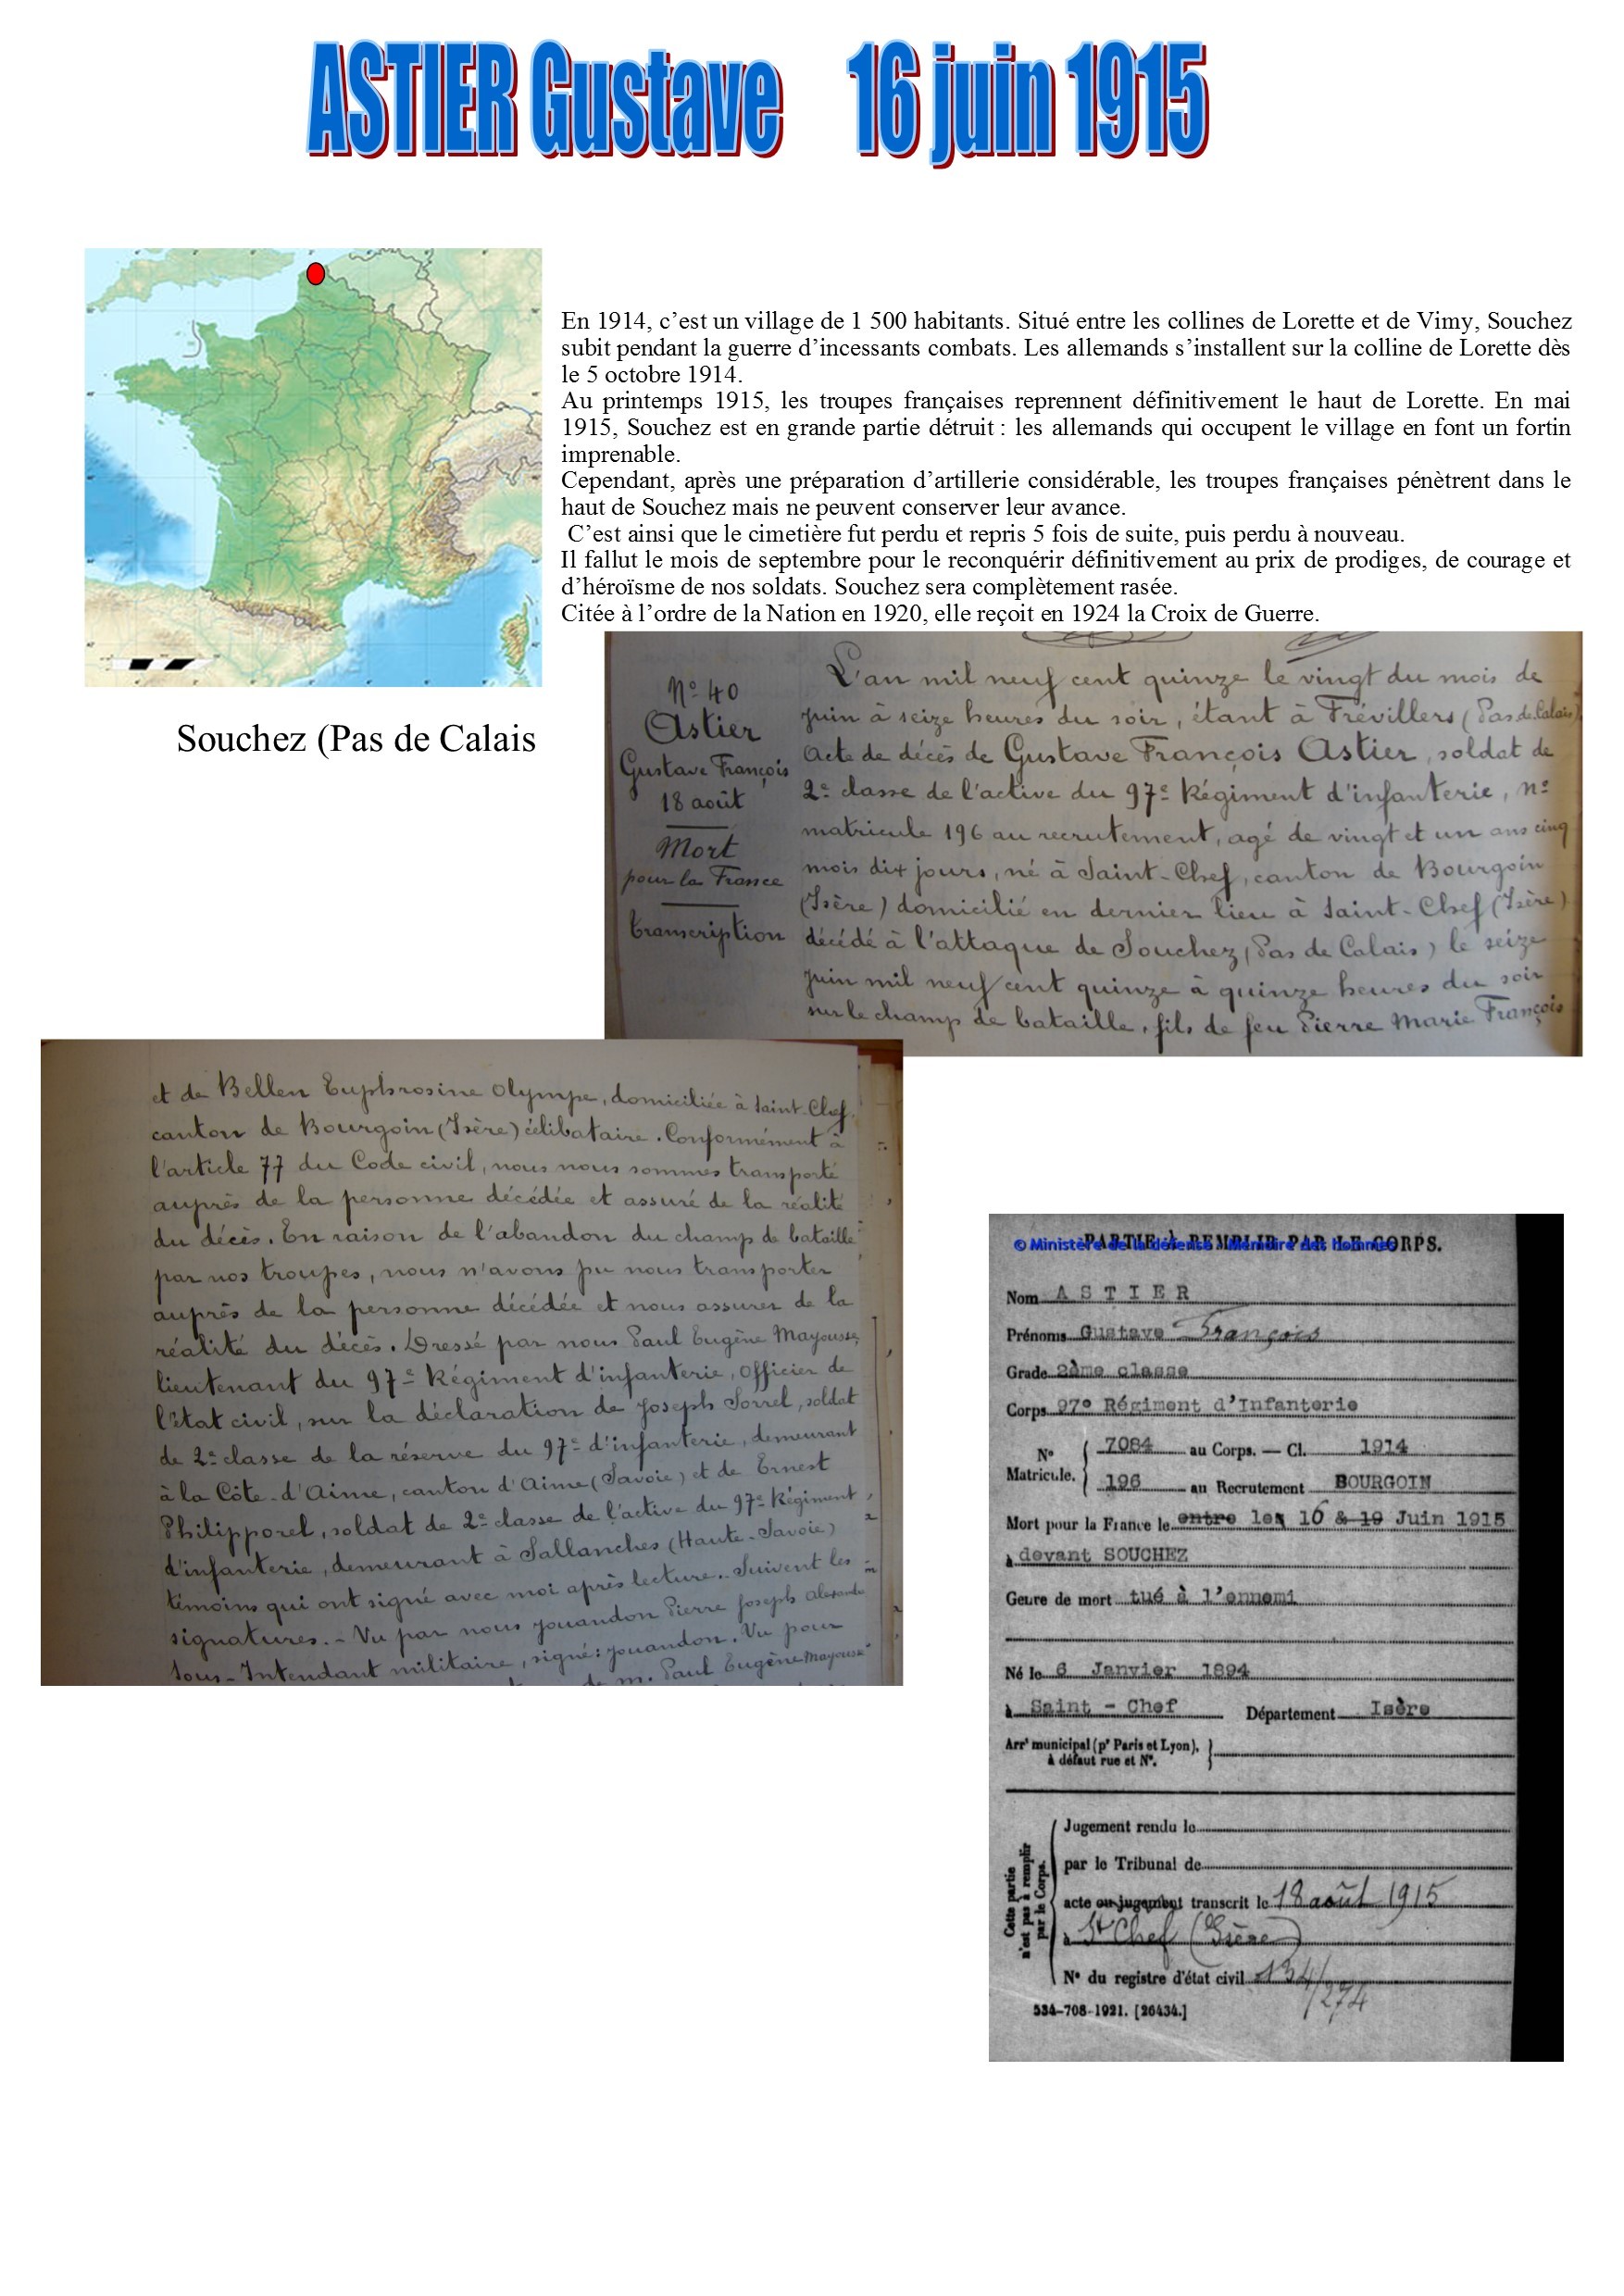 ASTIER Gustave 16 juin 1915
En 1914, c’est un village de 1 500 habitants. Situé entre les collines de Lorette et de Vimy, Souchez
subit pendant la guerre d’incessants combats. Les allemands s’installent sur la colline de Lorette dès
le 5 octobre 1914.
Au printemps 1915, les troupes françaises reprennent définitivement le haut de Lorette. En mai
1915, Souchez est en grande partie détruit : les allemands qui occupent le village en font un fortin
imprenable.
Cependant, après une préparation d’artillerie considérable, les troupes françaises pénètrent dans le
haut de Souchez mais ne peuvent conserver leur avance.
C’est ainsi que le cimetière fut perdu et repris 5 fois de suite, puis perdu à nouveau.
Il fallut le mois de septembre pour le reconquérir définitivement au prix de prodiges, de courage et
d’héroïsme de nos soldats. Souchez sera complètement rasée.
Citée à l’ordre de la Nation en 1920, elle reçoit en 1924 la Croix de Guerre.
Souchez (Pas de Calais
Nº 40
Astier
Gustave François
18 août
Mort
pour la France
transcription
L'an mil neuf cent quinze le vingt du mois de
juin à seize heures du soir, étant à Frévillers (Pas de Calais)
Acte de décès de Gustave François Astier, soldat de
2e classe de l'active du 97e Régiment d'infanterie, nº
matricule 196 au recrutement, agé de vingt et un ans cinq
mois dix jours, né à Saint-Chef, canton de Bourgoin
(Isère) domicilié en dernier lieu à Saint-Chef (Isère)
décédé à l'attaque de Souchez (Pas de Calais) le seize
juin mil neuf cent quinze à quinze heures du soir
sur le champ de bataille, fils de feu Pierre Marie François
et de Bellen Euphrosine Olympe, domiciliée à Saint-Chef,
canton de Bourgoin (Isère) célibataire. Conformément à
l'article 77 du Code civil, nous nous sommes transporté
auprès de la personne décédée et assuré de la réalité
du décès. En raison de l'abandon du champ de bataille
par nos troupes, nous n'avons pu nous transporter
auprès de la personne décédée et nous assurer de la
réalité du décès. Dressé par nous Paul Eugène Mayousse,
lieutenant du 97e Régiment d'infanterie, Officier de
l'état civil, sur la déclaration de Joseph Sorrel, soldat
de 2e classe de la réserve du 97e d'infanterie, demeurant
à la Côte-d'Aime, canton d'Aime (Savoie) et de Ernest
Philipporel, soldat de 2e classe de l'active du 97e Régiment
d'infanterie, demeurant à Sallanches (Haute-Savoie)
témoins qui ont signé avec moi après lecture. Suivent les
signatures. - Vu par nous Jouandon Pierre Joseph Alexandre
Sous-Intendant militaire, signé: Jouandon. Vu pour
de m. Paul Eugène Mayousse
© Ministère de la défense - Mémoire des hommes
PARTIE À REMPLIR PAR LE CORPS.
Nom ASTIER
Prénoms Gustave François
Grade 2ème classe
Corps 97e Régiment d'Infanterie
Nº Matricule. 7084 au Corps. — Cl. 1914
196 au Recrutement BOURGOIN
Mort pour la France le entre les 16 & 19 Juin 1915
à devant SOUCHEZ
Genre de mort tué à l'ennemi
Né le 6 Janvier 1894
à Saint - Chef Département Isère
Arrt municipal (pr Paris et Lyon),
à défaut rue et Nº.
Cette partie
n'est pas à remplir
par le Corps.
Jugement rendu le
par le Tribunal de
acte ou jugement transcrit le 18 août 1915
à St Chef (Isère)
Nº du registre d'état civil 134/274
534-708-1921. [26434.]